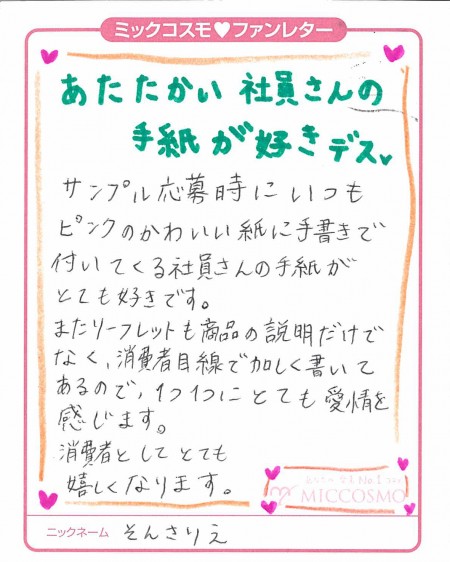 ミックコスモ♥ファンレター
あたたかい社員さんの
手紙が好きデス♥
サンプル応募時にいつも
ピンクのかわいい紙に手書きで
付いてくる社員さんの手紙が
とても好きです。
またリーフレットも商品の説明だけで
なく、消費者目線で加しく書いて
あるので、1つ1つにとても愛情を
感じます。
消費者としてとても
嬉しくなります。
No.1
MICCOSMO
ニックネーム そんさりえ